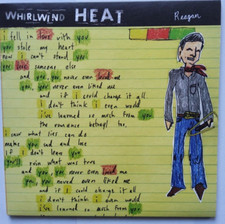 WHIRLWIND HEAT
Reagan
i fell in love with you
you stole my heart
now i can't stand you
you love someone else
and you, you never even loved me
you, you never even liked me
and if i could change it all
i don't think i even would
i've learned so much from you
the runaway
i saw what lies can do
make you sad and lose
if i don't leave you
you'll ruin what was true
and you, you never even loved me
you, you never even liked me
if i could change it all
i don't think i even would
i've learned so much from you